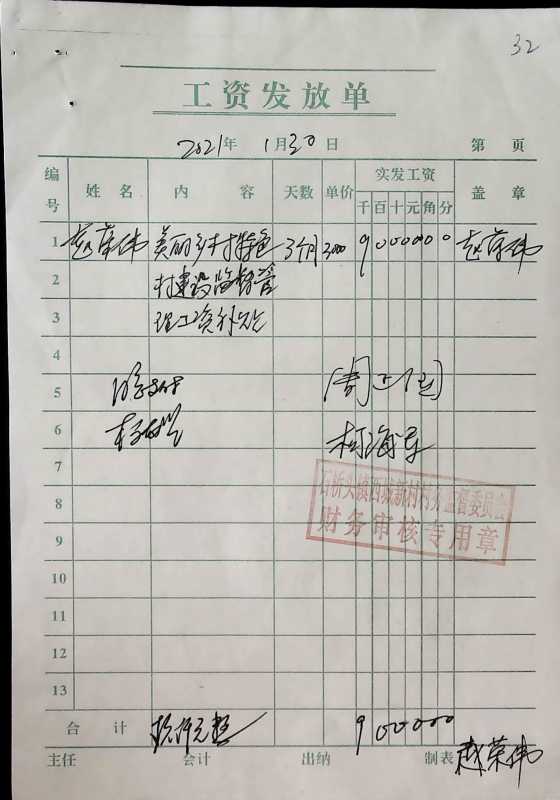 32
工资发放单
2021年 1月30日 第 页
编号 姓名 内容 天数 单价 实发工资 盖章
千 百 十 元 角 分
1 赵荣伟 美丽乡村特色 3个月 3000 9000000 赵荣伟
2 村建设监督管
3 理工资补贴
4
5
6 柯海军
7
石桥头镇西城新村村务监督委员会
8
财务审核专用章
9
10
11
12
13
合计 玖仟元整 900000
主任 会计 出纳 制表 赵荣伟